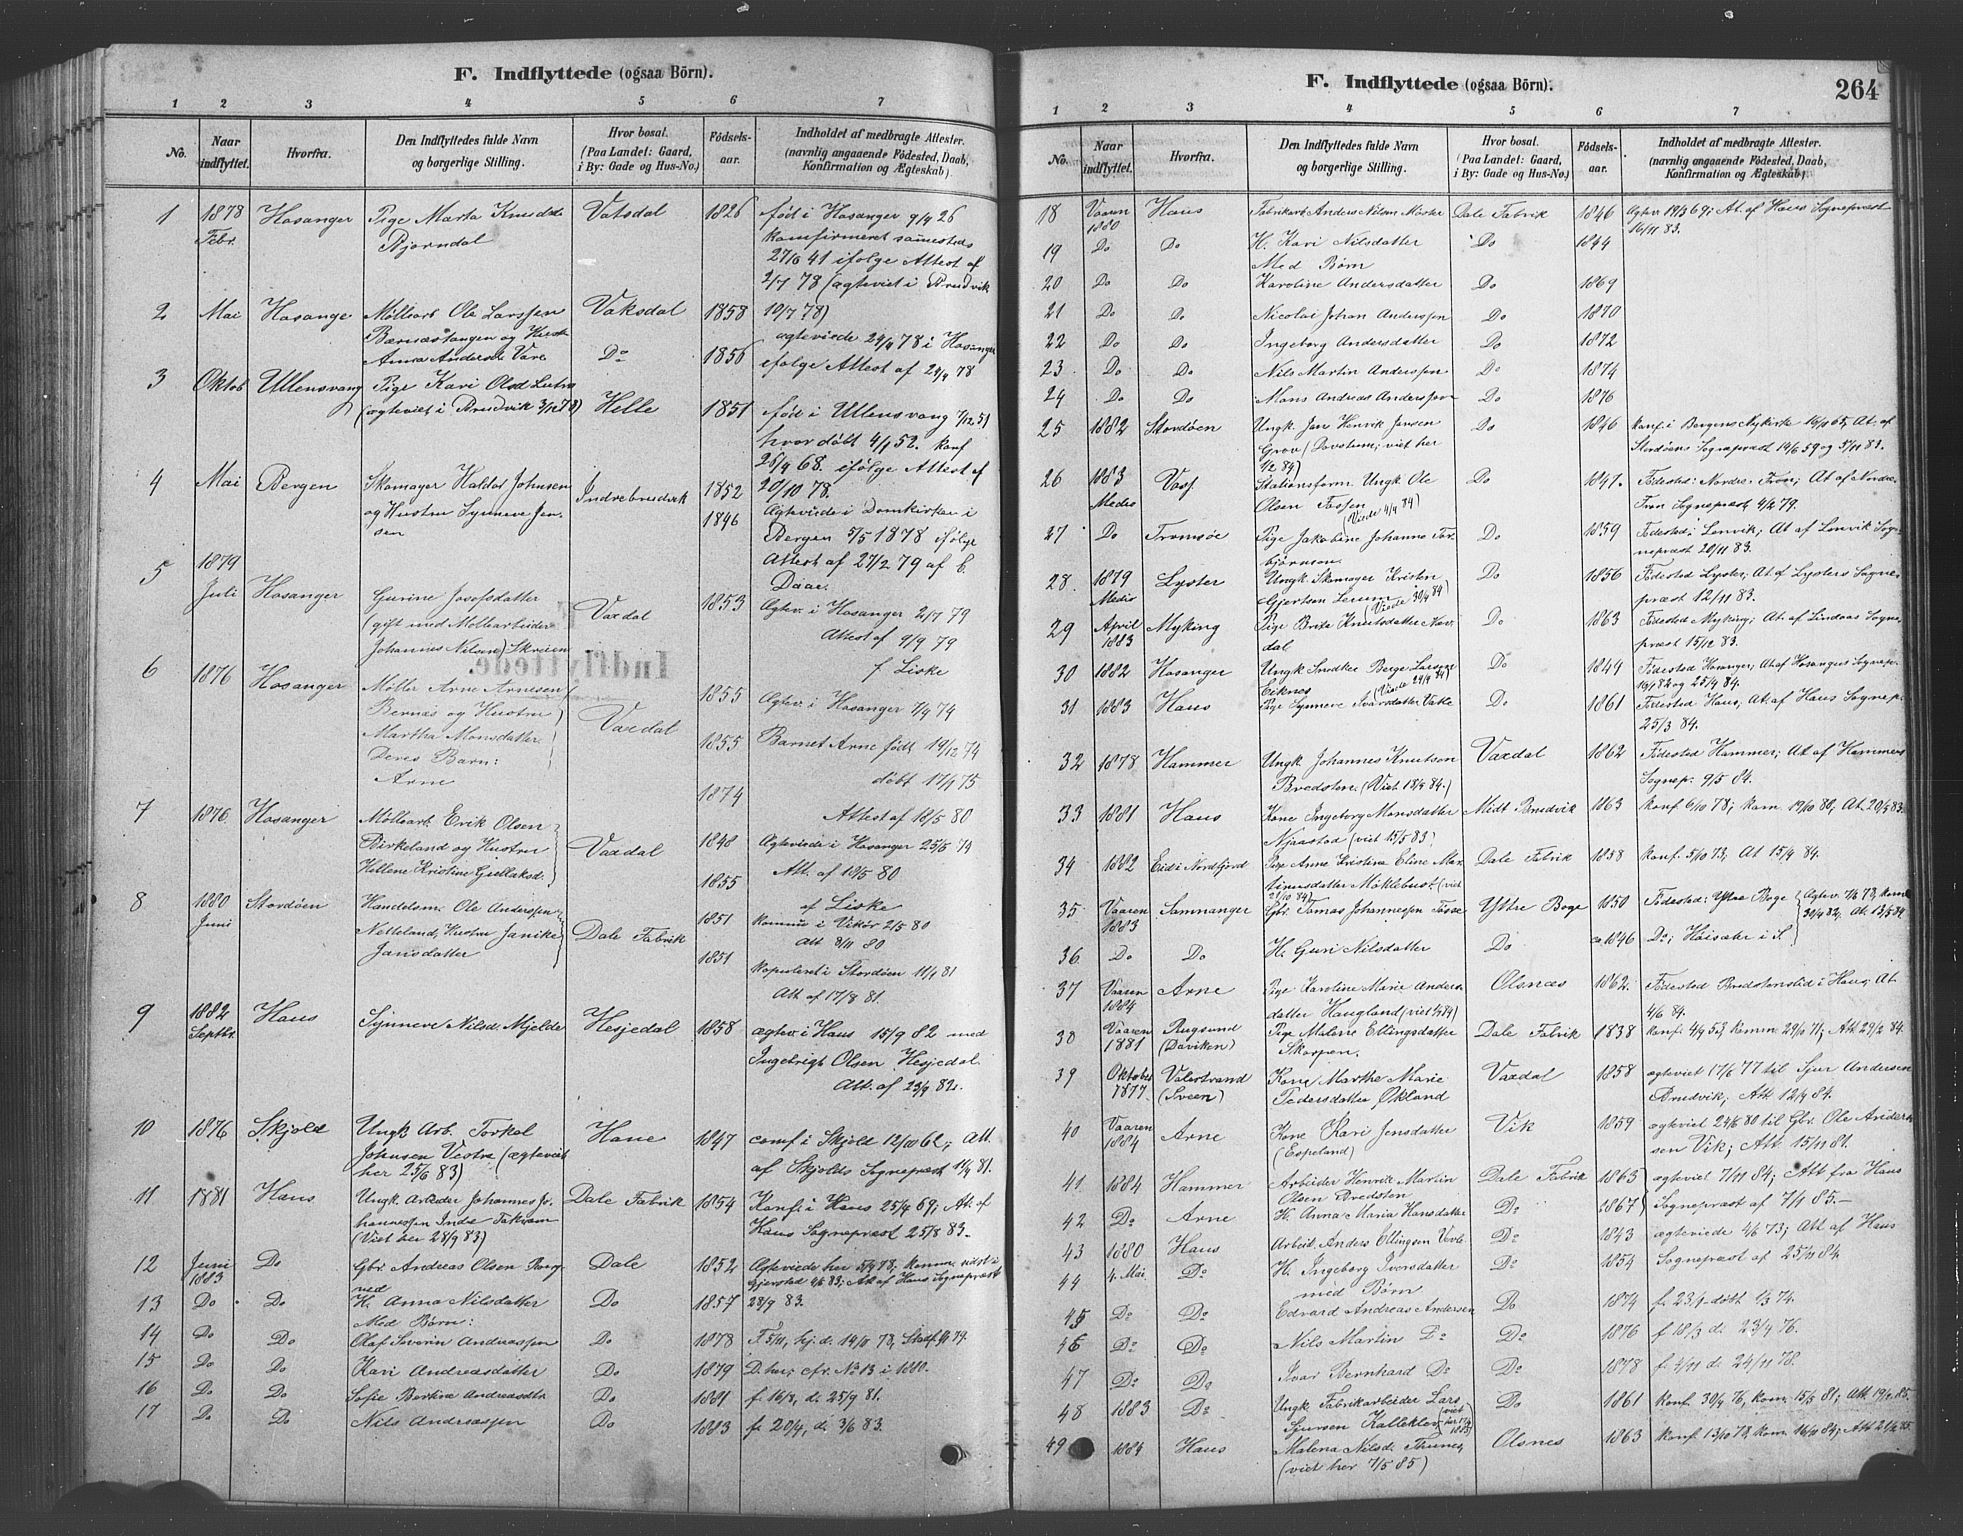 F. Indflyttede (ogsaa Börn).
1 2 3 4 5 6 7
No. Naar indflyttet. Hvorfra. Den Indflyttedes fulde Navn og borgerlige Stilling. Hvor bosat. (Paa Landet: Gaard, i By: Gade og Hus-No.) Födselsaar. Indholdet af medbragte Attester. (navnlig angaaende Födested, Daab, Konfirmation og Ægteskab).
1 1878 Hosanger Pige Marta Knudsd. Vatsdal 1826 född i Hosanger 9/4 26
Febr. Bjørndal konfirmeret sammesteds
27/6 41 ifølge Attest af
4/7 78 (ægteviet i Bruvik
2 Mai Hosange Møllearb. Ole Larssen Vaksdal 1858 10/7 78)
Bernæstangen og Hustr. ægteviede 29/4 78 i Hosanger
Anna Andersd. Do 1856 ifølge Attest af 29/4 78
3 Oktob Ullensvang Pige Kari Olsd.
(ægteviet i Bruvik 3/12 78) Helle 1851 født i Ullensvang 7/12 51
hvor døbt 4/1 52. Konf
26/4 68. ifølge Attest af
4 Mai Bergen Skomager Haldor Johnsen Indrebruvik 1852 20/10 78.
og Hustru Synneve Jensen 1846 Ægteviede i Domkirken i
Bergen 5/5 1878 ifølge
5 1879 Attest af 27/2 79 af C.
Daae.
Juli Hosanger Gurine Josefsdatter Vaxdal 1853 Ægtev. i Hosanger 2/7 79
(gift med Møllearbeider Attest af 9/9 79
Johannes Nilsen) Skreien f. Liske
6 1876 Hosanger Møller Arne Arnesen 1855 Ægtev. i Hosanger 7/4 74
Bernæs og Hustru Vaxdal
Martha Monsdatter. 1855 Barnet Arne født 19/12 74
Deres Barn: døbt 17/1 75
Arne 1874
7 1876 Hosanger Møllearb. Erik Olsen Attest af 18/5 80
Birkeland og Hustru Vaxdal 1848 Ægteviede i Hosanger 25/6 74
Hellene Kristine 1855 Att. af 18/5 80
8 1880 Stordøen Handelsm. Ole Anderssen af Liske
Juni Netteland, Hustru Janike Dale Fabrik 1851 Kommu i Vikør 2/5 80
Jansdatter Att 8/11 80
1851 Kopuleret i Stordøen 11/4 81
Att. af 17/8 81.
9 1882 Haus Synneve Nilsd. Mjelde Hesjedal 1858 ægtev. i Haus 15/9 82 med
Septbr. Ingebrigt Olsen Hesjedal
Att. af 23/9 82.
10 1876 Skjold Ungk. Arb. Torkel Hane 1847 conf i Skjold 12/10 62, Att.
Johnsen Vestre (ægteviet af Skjolds Sognepræst 11/4 81.
her 25/6 83)
11 1881 Haus Ungk. Arbeider Johannes Johannessen Dale Fabrik 1854 Konf. i Haus 25/4 69; At. af
Indre Takvam Haus Sognepræst 25/8 83.
(Viet her 28/9 83)
12 Juni 1883 Do Gbr. Andreas Olsen Dale 1852 Ægteviede her 78, Komm. sidst i
med Gjerstad 4/6 83; At. af Haus Sognepræst
13 Do Do H. Anna Nilsdatter Do 1857 28/9 83.
Med Børn:
14 Do Do Olaf Severin Andreassen Do 1878 f. 5/11, hj. d. 14/11 78, Stadf.
15 Do Do Kari Andreasdatter Do 1879 D. her, cfr. No 13 i 1880.
16 Do Do Sofie Berkve Andreasdtr. Do 1881 f. 16/8, d. 25/9 81.
17 Do Do Nils Andreassen Do 1883 f. 20/4, d. 3/6 83.
F. Indflyttede (ogsaa Börn).
264
1 2 3 4 5 6 7
No. Naar indflyttet. Hvorfra. Den Indflyttedes fulde Navn og borgerlige Stilling. Hvor bosat. (Paa Landet: Gaard, i By: Gade og Hus-No.) Födselsaar. Indholdet af medbragte Attester. (navnlig angaaende Födested, Daab, Konfirmation og Ægteskab).
18 Vaaren 1880 Haus Fabrikarb. Anders Nilsen Mjøster Dale Fabrik 1846 Ægtev. 19/3 69; At. af Haus Sognepræst
16/11 83.
19 Do Do H. Kari Nilsdatter Do 1844
Med Børn
20 Do Do Karoline Andersdatter Do 1869
21 Do Do Nicolai Johan Anderssen Do 1870
22 Do Do Ingeborg Andersdatter Do 1872
23 Do Do Nils Martin Anderssen Do 1874
24 Do Do Mons Andreas Anderssen Do 1876
25 1882 Stordøen Ungk. Jan Henrik Jansen Do 1846 Konf. i Bergens Nykirke 16/10 65, At. af
Grov (Dovetun; viet her Stordøens Sognepræst 19/6 59 og 5/11 83.
1/2 84)
26 1883 Voss Stationsform. Ungk. Ole Do 1847. Fødested: Nordre Fron; At af Nordre
Medio Olsen Fossen (Viede 4/9 84) Fron Sognepræst 4/2 79.
27 Do Tromsøe Pige Jakobine Johanna Torbjørnsen Do 1859 Fødested: Lenvik; At af Lenvik Sognepræst 20/11 83.
28 1879 Medio Lyster Ungk. Skomager Kristen Do 1856 Fødested Lyster; At. af Lysters Sognepræst 12/11 83.
Gjertsen Lerum (Viede 30/9 84)
29 April 1883 Myking Pige Brita Knutsdatter Nordal Do 1863 Fødested Myking; At. af Lindaas Sognepræst 15/12 83.
30 1882 Hosanger Ungk Snedker Berge Larsen Do 1849 Fødested Hosanger; At. af Hosanger Sognep.
Eiknes (Viede 29/9 84) 19/1 82 og 25/9 84.
31 1883 Haus Pige Synneve Ivarsdatter Vatle Do 1861 Fødested Haus; At. af Haus Sognep.
25/3 84.
32 1878 Hammer Ungk. Johannes Knutson Vaxdal 1862 Fødested Hammer; At. af Hammers
Bredsten (Viet 18/9 84.) Sognep. 9/5 84.
33 1881 Haus Kone Ingeborg Monsdatter Midt Bruvik 1863 Konf 6/10 78; Kom. 19/10 80, At. 20/4 83.
Njaastad (viet 15/5 83)
34 1882 Eid i Nordfjord Pige Anne Kristine Eline Martinusdatter Dale Fabrik 1858 Konf. 5/10 73, At 15/9 84.
Møklebust (viet 21/10 84)
35 Vaaren 1883 Samnanger Gbr. Tomas Johannessen Tøsse Ystre Boge 1850 Fødested: Ystre Boge Ægtev. 7/6 78, Kom.
30/4 82, At. 13/5 84.
36 Do Do H. Guri Nilsdatter Do ca 1846 Do; Høisæter i S.
37 Vaaren 1884 Arne Pige Karoline Marie Andersdatter Olsnæs 1862. Fødested Bredstensted i Haus; At
Haugland (viet 84) 4/6 84.
38 Vaaren 1881 Rugsund (Daviken) Pige Malene Ellingsdatter Dale Fabrik 1838 Konf. 4/9 53, Komm 29/6 71; Att 29/2 84.
Skorpen.
39 Oktober 1877 Valestrand (Sveen) Kone Marthe Marie Vaxdal 1858 ægteviet 17/6 77 til Sjur Andersen
Pedersdatter Økland Bruvik, Att 12/9 84.
40 Vaaren 1884 Arne Kone Kari Jensdatter Vik 1859 ægteviet 24/6 80 til Gbr. Ole Andersen
(Espeland) Vik; Att. 15/11 81.
41 1884 Hammer Arbeider Henrik Martin Dale Fabrik 1863 ægteviet 7/11 84; Att fra Haus
Olsen Bredsten
42 Do Arne H. Anna Maria Hansdatter Do 1867 Sognepræst af 7/1 85.
43 1880 Haus Arbeid. Anders Ellingsen Do 1843 ægteviede 4/6 73; At. af Haus
44 4. Mai Do H. Ingeborg Iversdatter Do 1854 Sognepræst af 25/11 84.
med Børn
45 Do Do Edvard Andreas Andersen Do 1874 f. 23/1 døbt 1/3 74.
46 Do Do Nils Martin Do Do 1876 f 18/3 d. 23/4 76.
47 Do Do Ivar Bernhard Do Do 1878 f. 4/11 d. 24/11 78.
48 1883 Do Ungk. Fabrikarbeider Lars Do 1861 Konf. 30/4 76, Kom. 15/3 81; Att. 19/2 85.
Sjursen Kalleklev
49 1884 Haus Malena Nilsd. Thunes Olsnes 1863 Konf 13/10 78, Kom 16/11 84; Att 21/2 85.
(viet her 7/5 85)